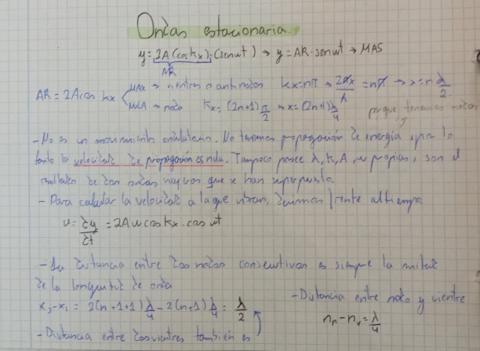 Ondas estacionaria.
y = 2A(cos kx)·(senωt) → y = AR·senωt → MAS
AR
AR = 2A cos kx
MAX → vientres o antinodos kx = nπ → 2πx/λ = nπ → x = n λ/2
MIN → nodo kx = (2n+1) π/2 → x = (2n+1) λ/4
porque tenemos nodos
- No es un movimiento ondulatorio. No tenemos propagación de energía y por lo
tanto la velocidad de propagación es nula. Tampoco posee λ, k, A, ω propias, son el
resultado de dos ondas que se han superpuesto
- Para calcular la velocidad a la que vibran, derivamos frente al tiempo
v = ∂y/∂t = 2Aω cos kx · cos ωt
- La distancia entre dos nodos consecutivos es siempre la mitad
de la longitud de onda
x₂-x₁ = 2(n+1+1) λ/4 - 2(n+1) λ/4 = λ/2
- Distancia entre dos vientres también es
- Distancia entre nodo y vientre
nₙ - nᵥ = λ/4